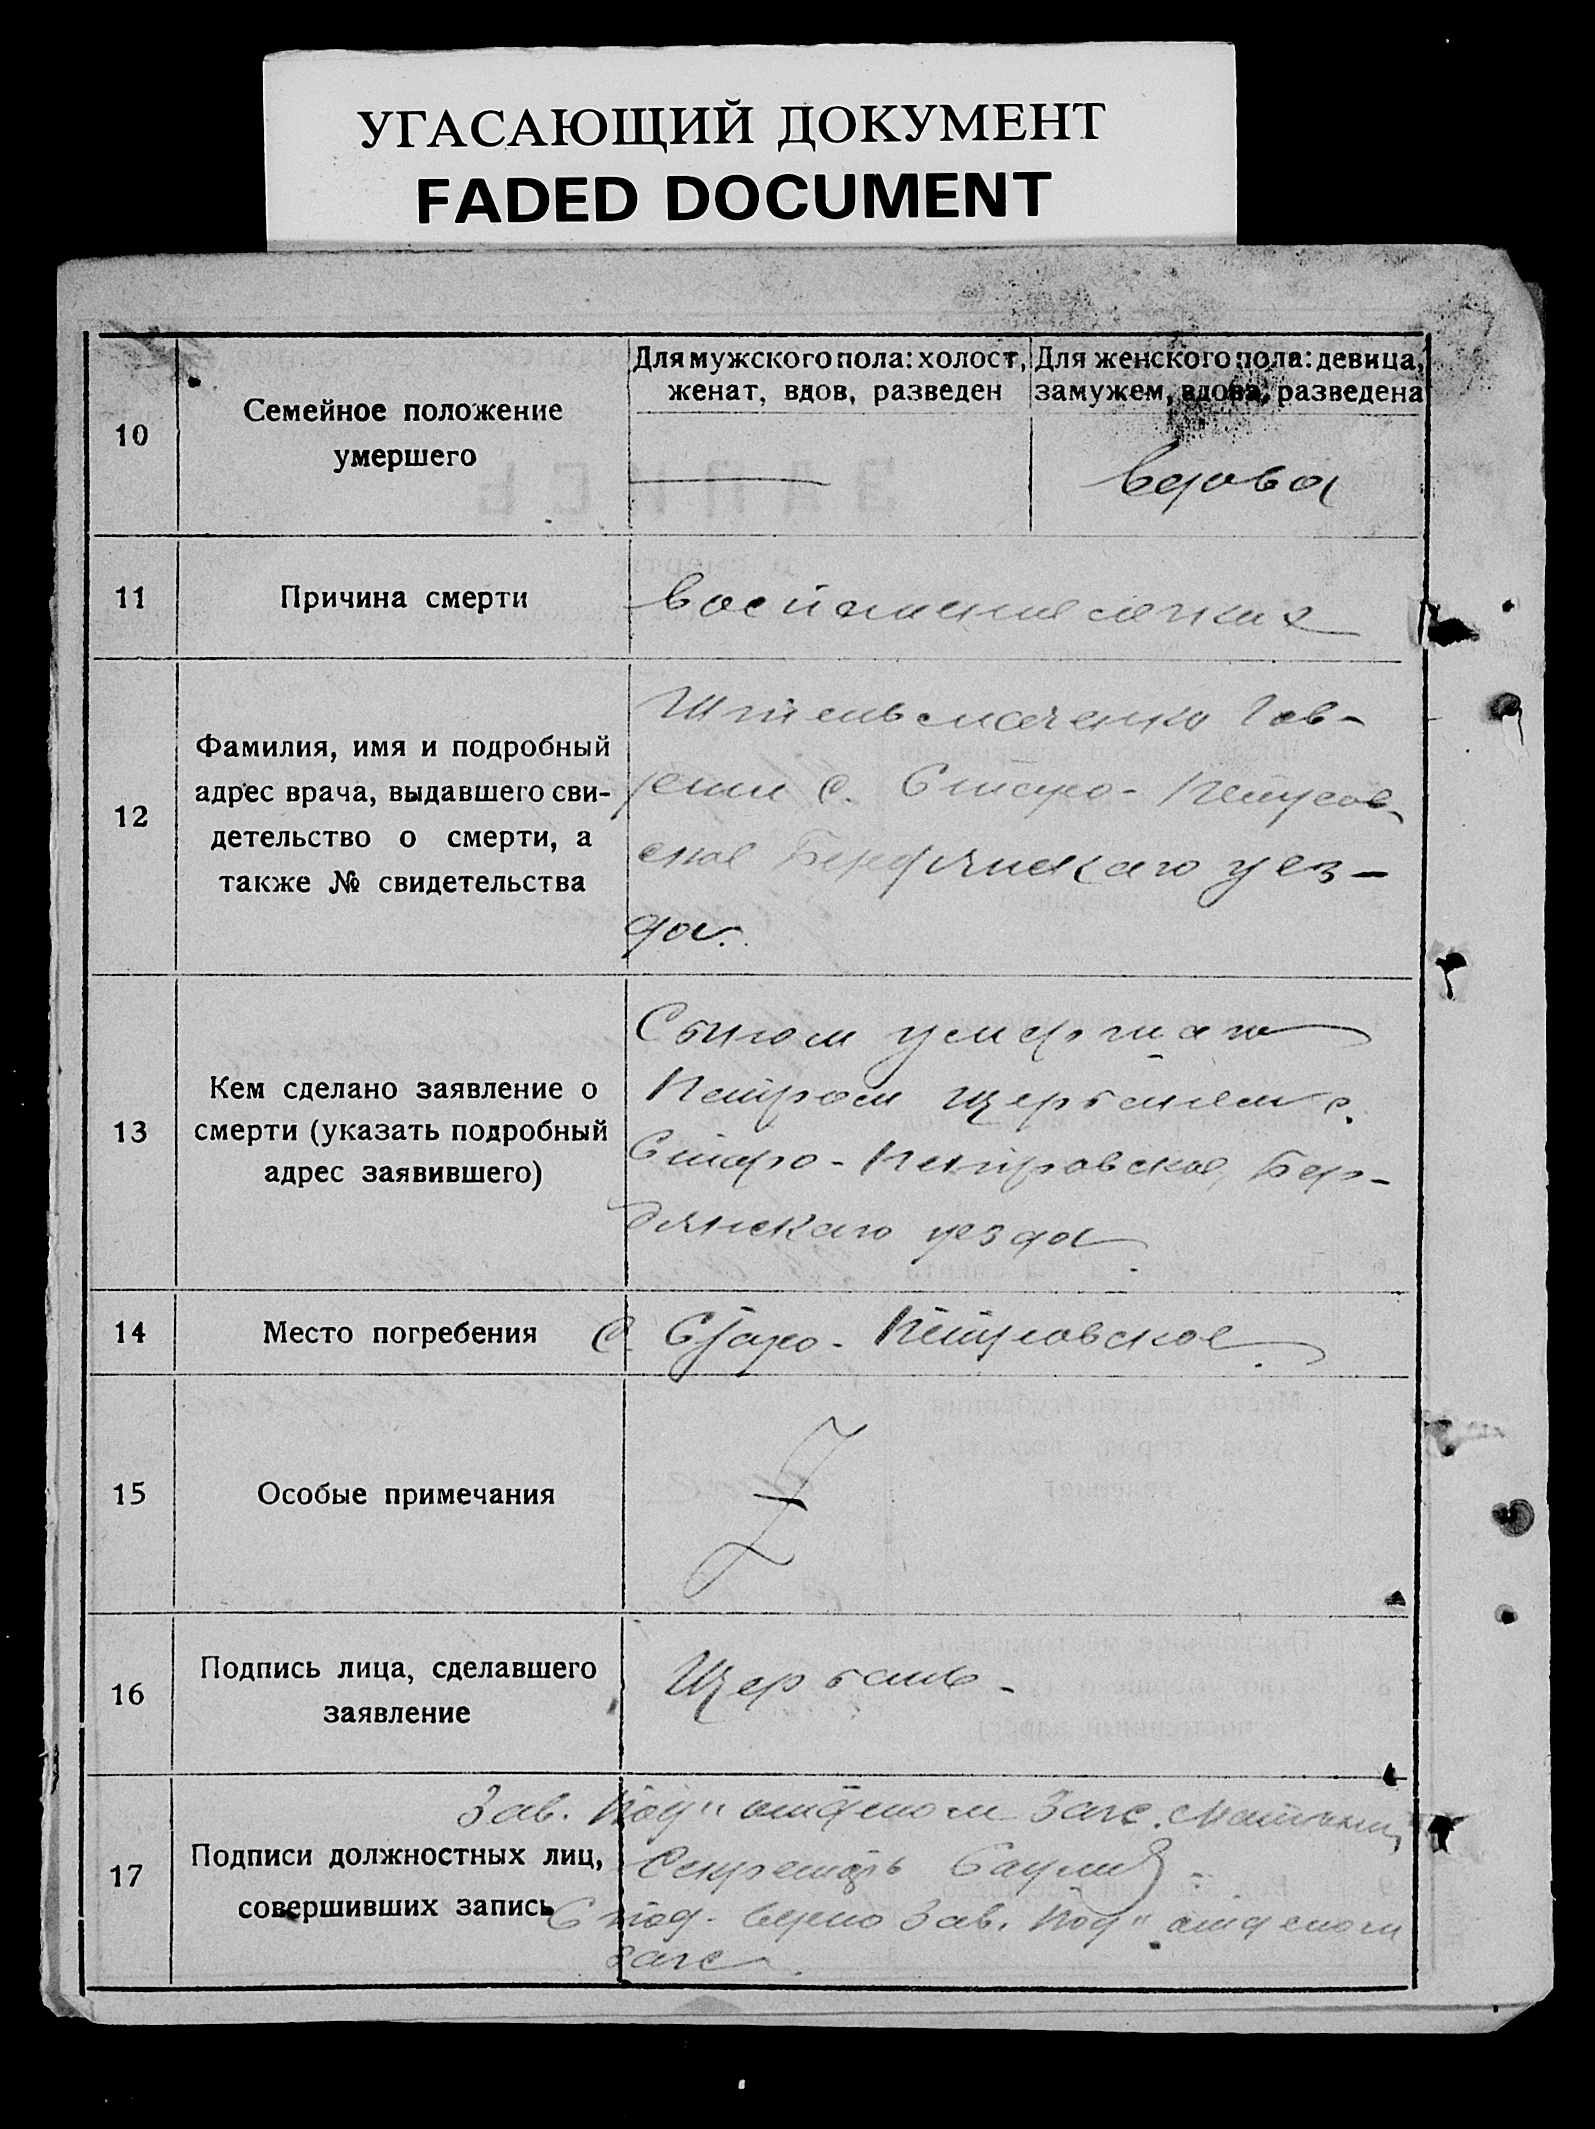 УГАСАЮЩИЙ ДОКУМЕНТ
FADED DOCUMENT
10
Семейное положение
умершего
Для мужского пола: холост,
женат, вдов, разведен
Для женского пола: девица,
замужем, вдова, разведена
вдова
11
Причина смерти
воспаление легких
12
Фамилия, имя и подробный
адрес врача, выдавшего сви-
детельство о смерти, а
также № свидетельства
с. Старо-Петров-
ское Бердянскаго уез-
да.
13
Кем сделано заявление о
смерти (указать подробный
адрес заявившего)
Сыном умершаго
Петром Щербанем с.
Старо-Петровское, Бер-
дянскаго уезда
14
Место погребения
с. Старо-Петровское
15
Особые примечания
Z
16
Подпись лица, сделавшего
заявление
Щербань
17
Подписи должностных лиц,
совершивших запись
Зав. Под" отделом Загс.
Секретарь
С под. верно Зав. Под" отделом
Загс